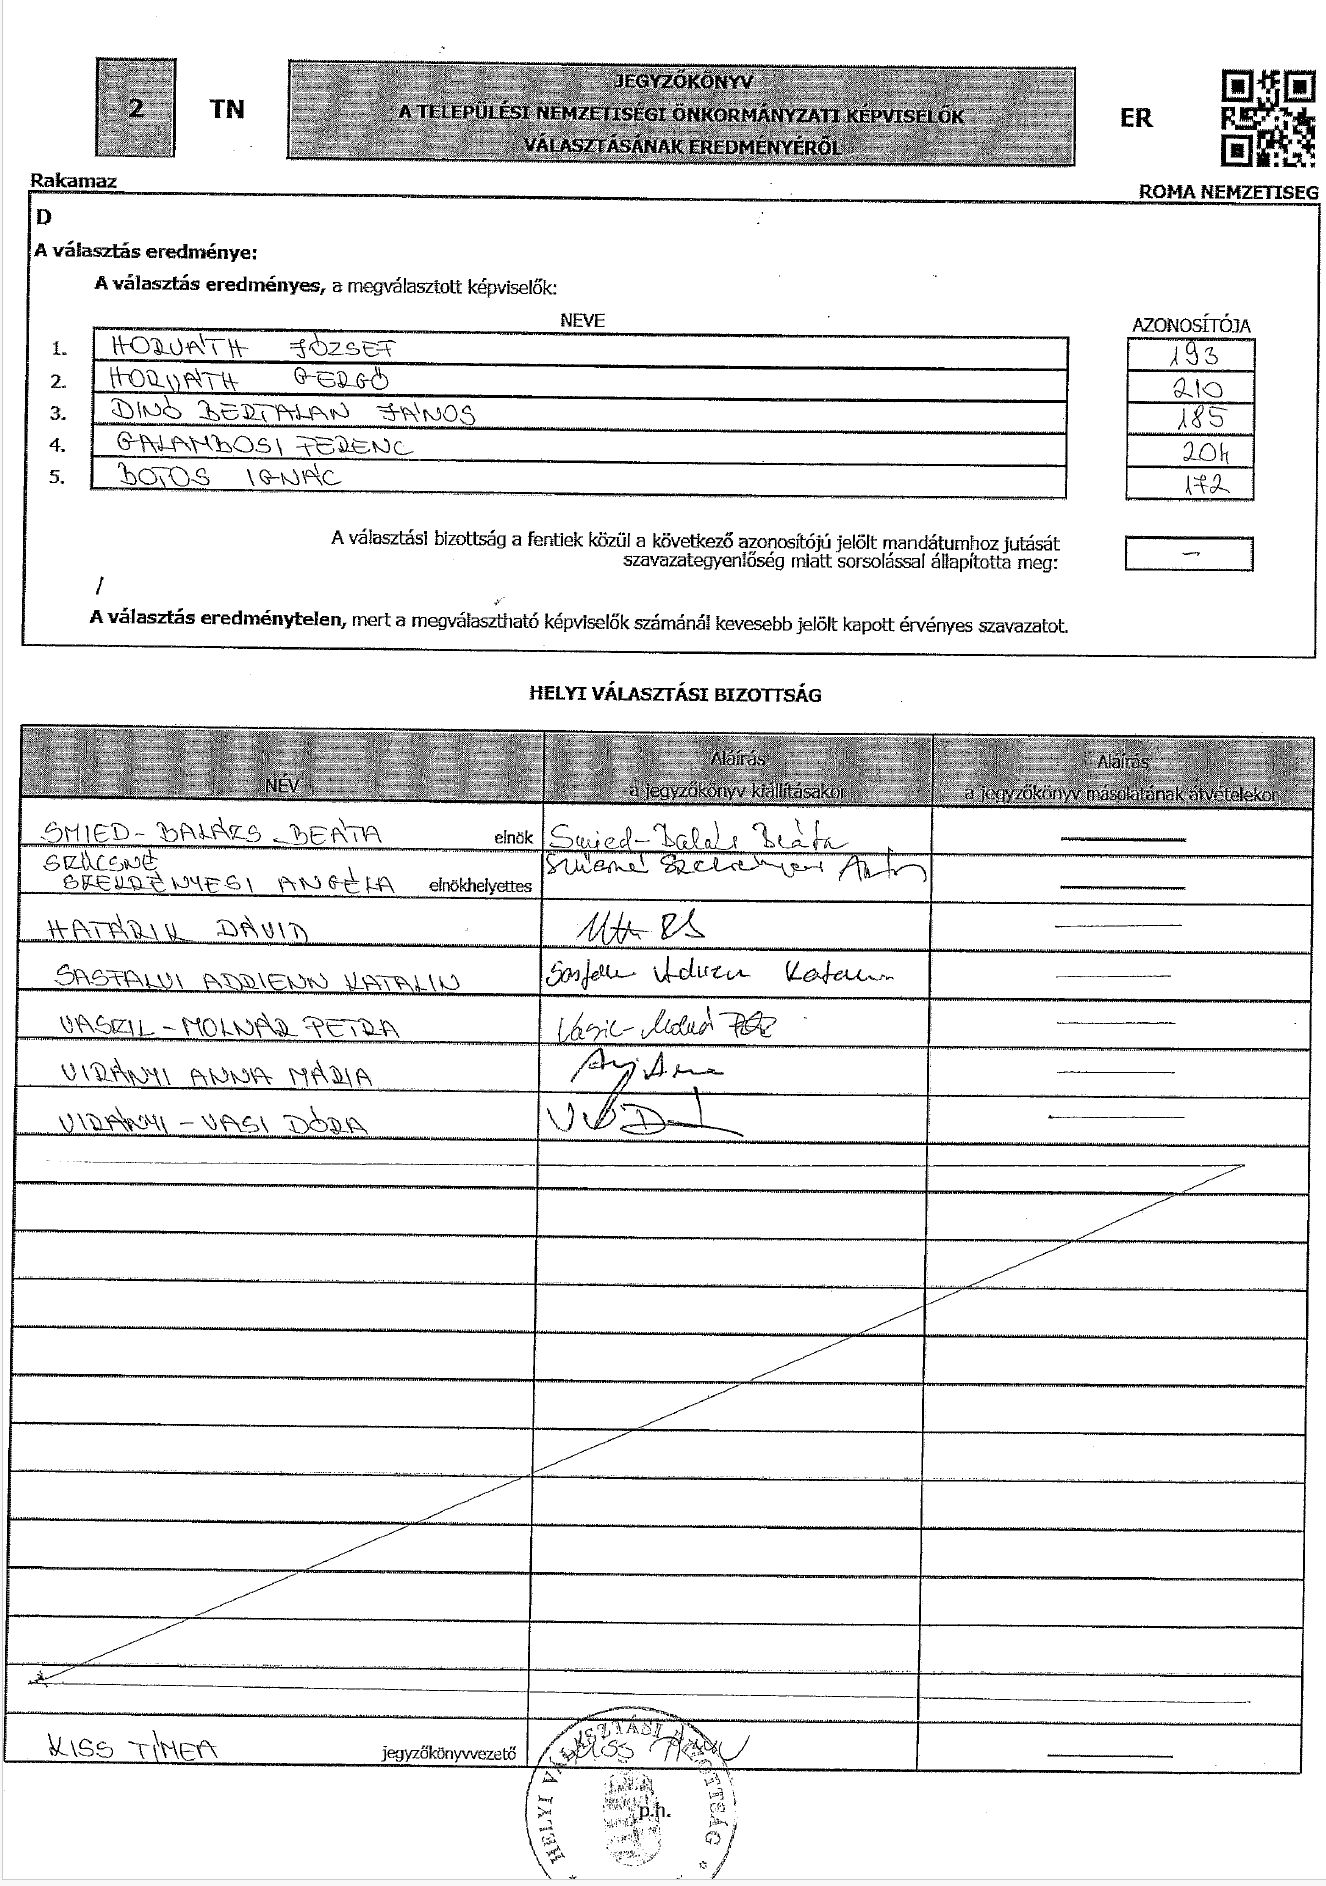 2 TN JEGYZŐKÖNYV ER
A TELEPÜLÉSI NEMZETISÉGI ÖNKORMÁNYZATI KÉPVISELŐK
VÁLASZTÁSÁNAK EREDMÉNYÉRŐL
Rakamaz ROMA NEMZETISEG
D
A választás eredménye:
A választás eredményes, a megválasztott képviselők:
NEVE AZONOSÍTÓJA
1. HORVÁTH JÓZSEF 193
2. HORVÁTH GERGŐ 210
3. DINÓ BERTALAN JÁNOS 185
4. GALAMBOSI FERENC 204
5. BOTOS IGNÁC 172
A választási bizottság a fentiek közül a következő azonosítójú jelölt mandátumhoz jutását –
szavazategyenlőség miatt sorsolással állapította meg:
/
A választás eredménytelen, mert a megválasztható képviselők számánál kevesebb jelölt kapott érvényes szavazatot.
HELYI VÁLASZTÁSI BIZOTTSÁG
NÉV Aláírás a jegyzőkönyv kiállításakor Aláírás a jegyzőkönyv másolatának átvételekor
SMIED-BALÁZS BEÁTA elnök Smied-Balázs Beáta
SZŰCSNÉ
SZEKRÉNYESI ANGÉLA elnökhelyettes
HATÁRIK DÁVID
SASFALVI ADRIENN KATALIN
VASZIL-MOLNÁR PETRA
VIRÁNYI ANNA MÁRIA
VIRÁNYI-VASI DÓRA
KISS TÍMEA jegyzőkönyvvezető Kiss Tímea
HELYI VÁLASZTÁSI BIZOTTSÁG
p.h.